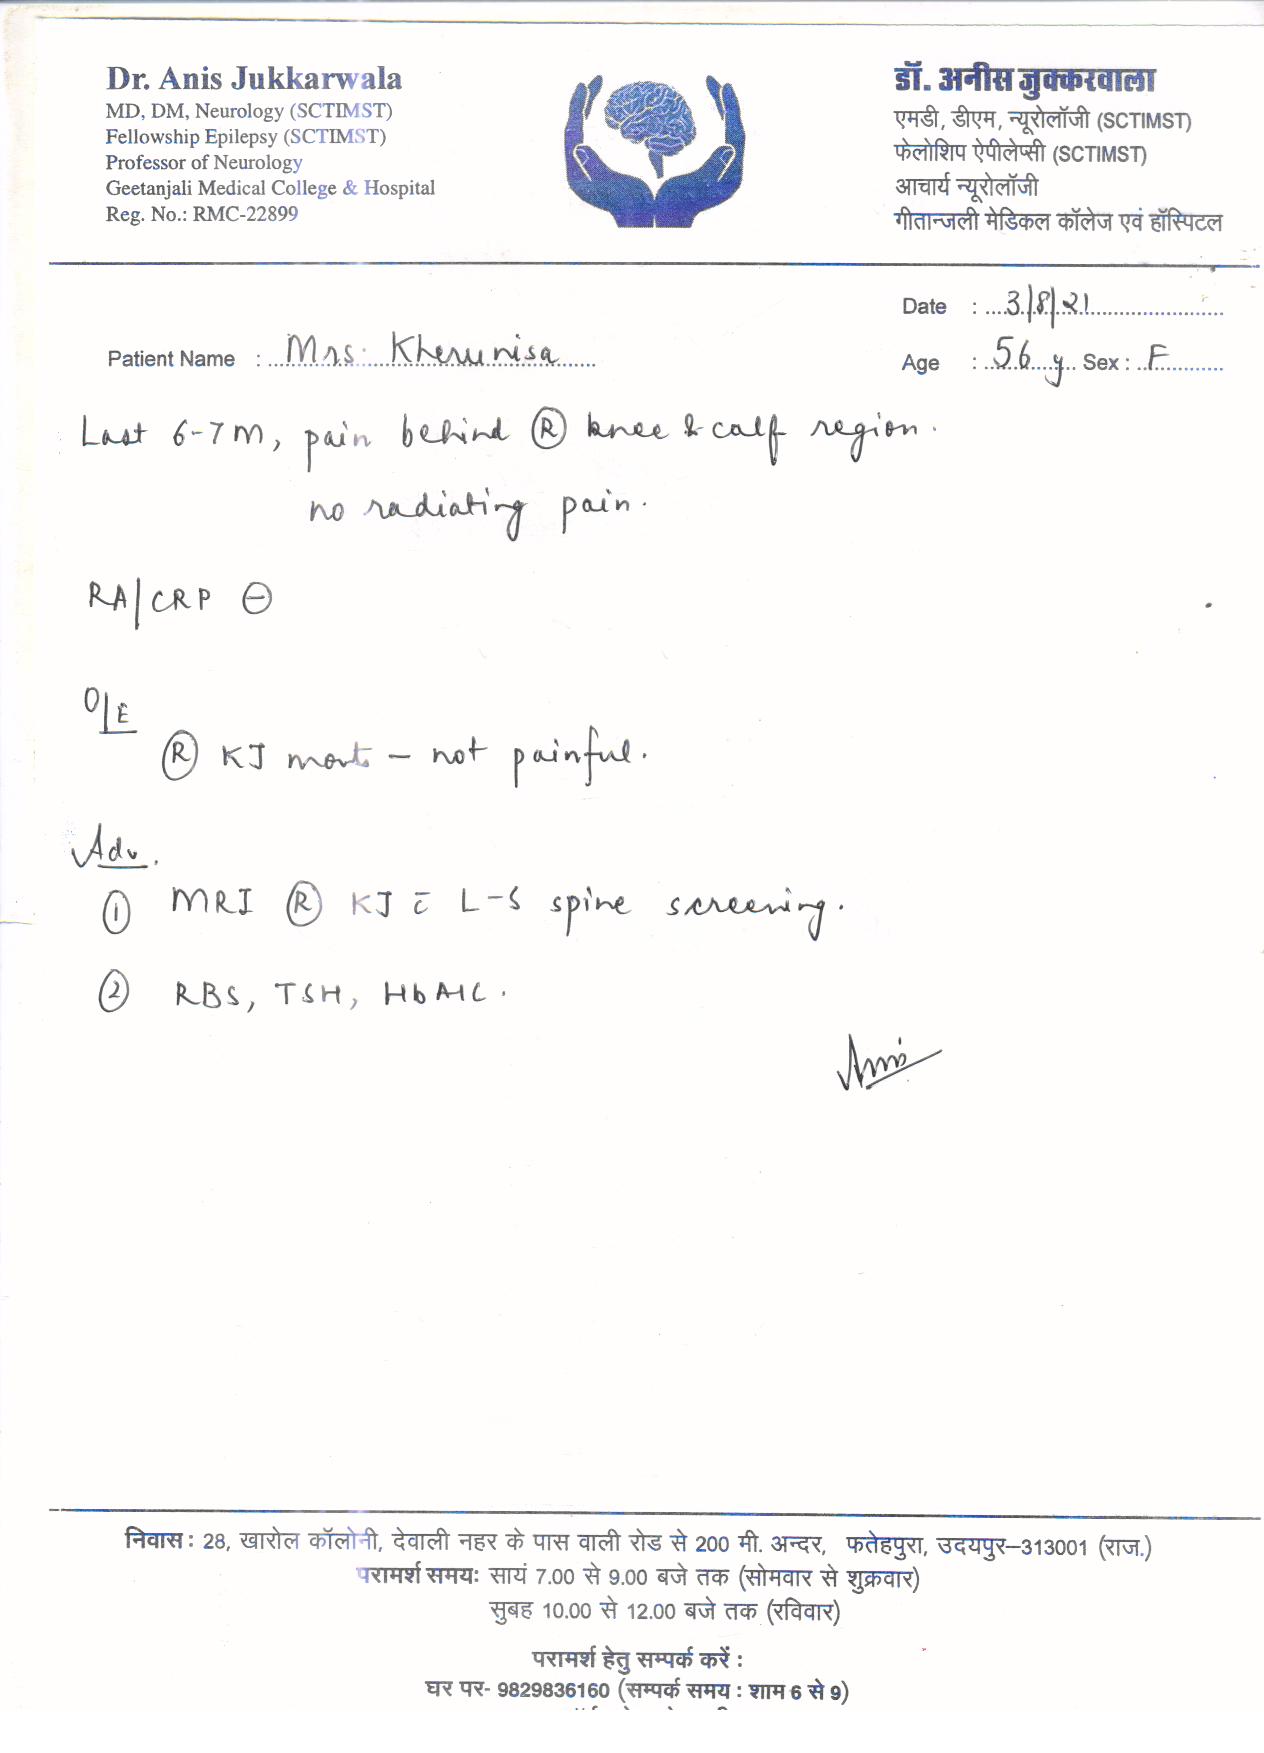 Dr. Anis Jukkarwala
MD, DM, Neurology (SCTIMST)
Fellowship Epilepsy (SCTIMST)
Professor of Neurology
Geetanjali Medical College & Hospital
Reg. No.: RMC-22899
डॉ. अनीस जुक्करवाला
एमडी, डीएम, न्यूरोलॉजी (SCTIMST)
फेलोशिप ऐपीलेप्सी (SCTIMST)
आचार्य न्यूरोलॉजी
गीतान्जली मेडिकल कॉलेज एवं हॉस्पिटल
Date : 3/8/21
Patient Name : Mrs. Kherunisa
Age : 56 y Sex : F
Last 6-7 M, pain behind Ⓡ knee & calf region.
no radiating pain.
RA/CRP ⊖
O/E
Ⓡ KJ - not painful.
Adv.
① MRI Ⓡ KJ c̄ L-S spine screening.
② RBS, TSH, HbA1C.
Anis
निवास : 28, खारोल कॉलोनी, देवाली नहर के पास वाली रोड से 200 मी. अन्दर, फतेहपुरा, उदयपुर–313001 (राज.)
परामर्श समयः सायं 7.00 से 9.00 बजे तक (सोमवार से शुक्रवार)
सुबह 10.00 से 12.00 बजे तक (रविवार)
परामर्श हेतु सम्पर्क करें :
घर पर- 9829836160 (सम्पर्क समय : शाम 6 से 9)